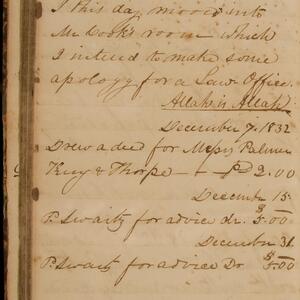 I this day moved into
Mr Cook's room which
I intend to make some
apology for a Law Office.
Allah is Allah
December 7. 1832
Drew a deed for Messrs Palmer
King & Thorpe — Pd 2.00
December 15.
P. Swartz for advice dr. $5.00
December 31.
P. Swartz for advice Dr $5.00